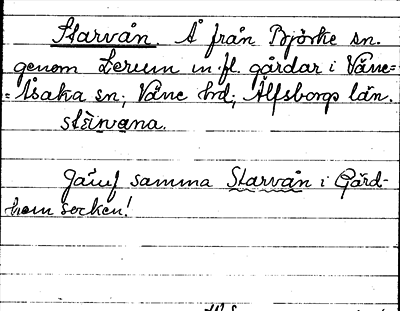 Starvån. Å från Björke sn.
genom Lerum m. fl. gårdar i Väne=
=Åsaka sn; Väne hd; Älfsborgs län.
Jämf samma Starvån i Gärd-
hem socken!